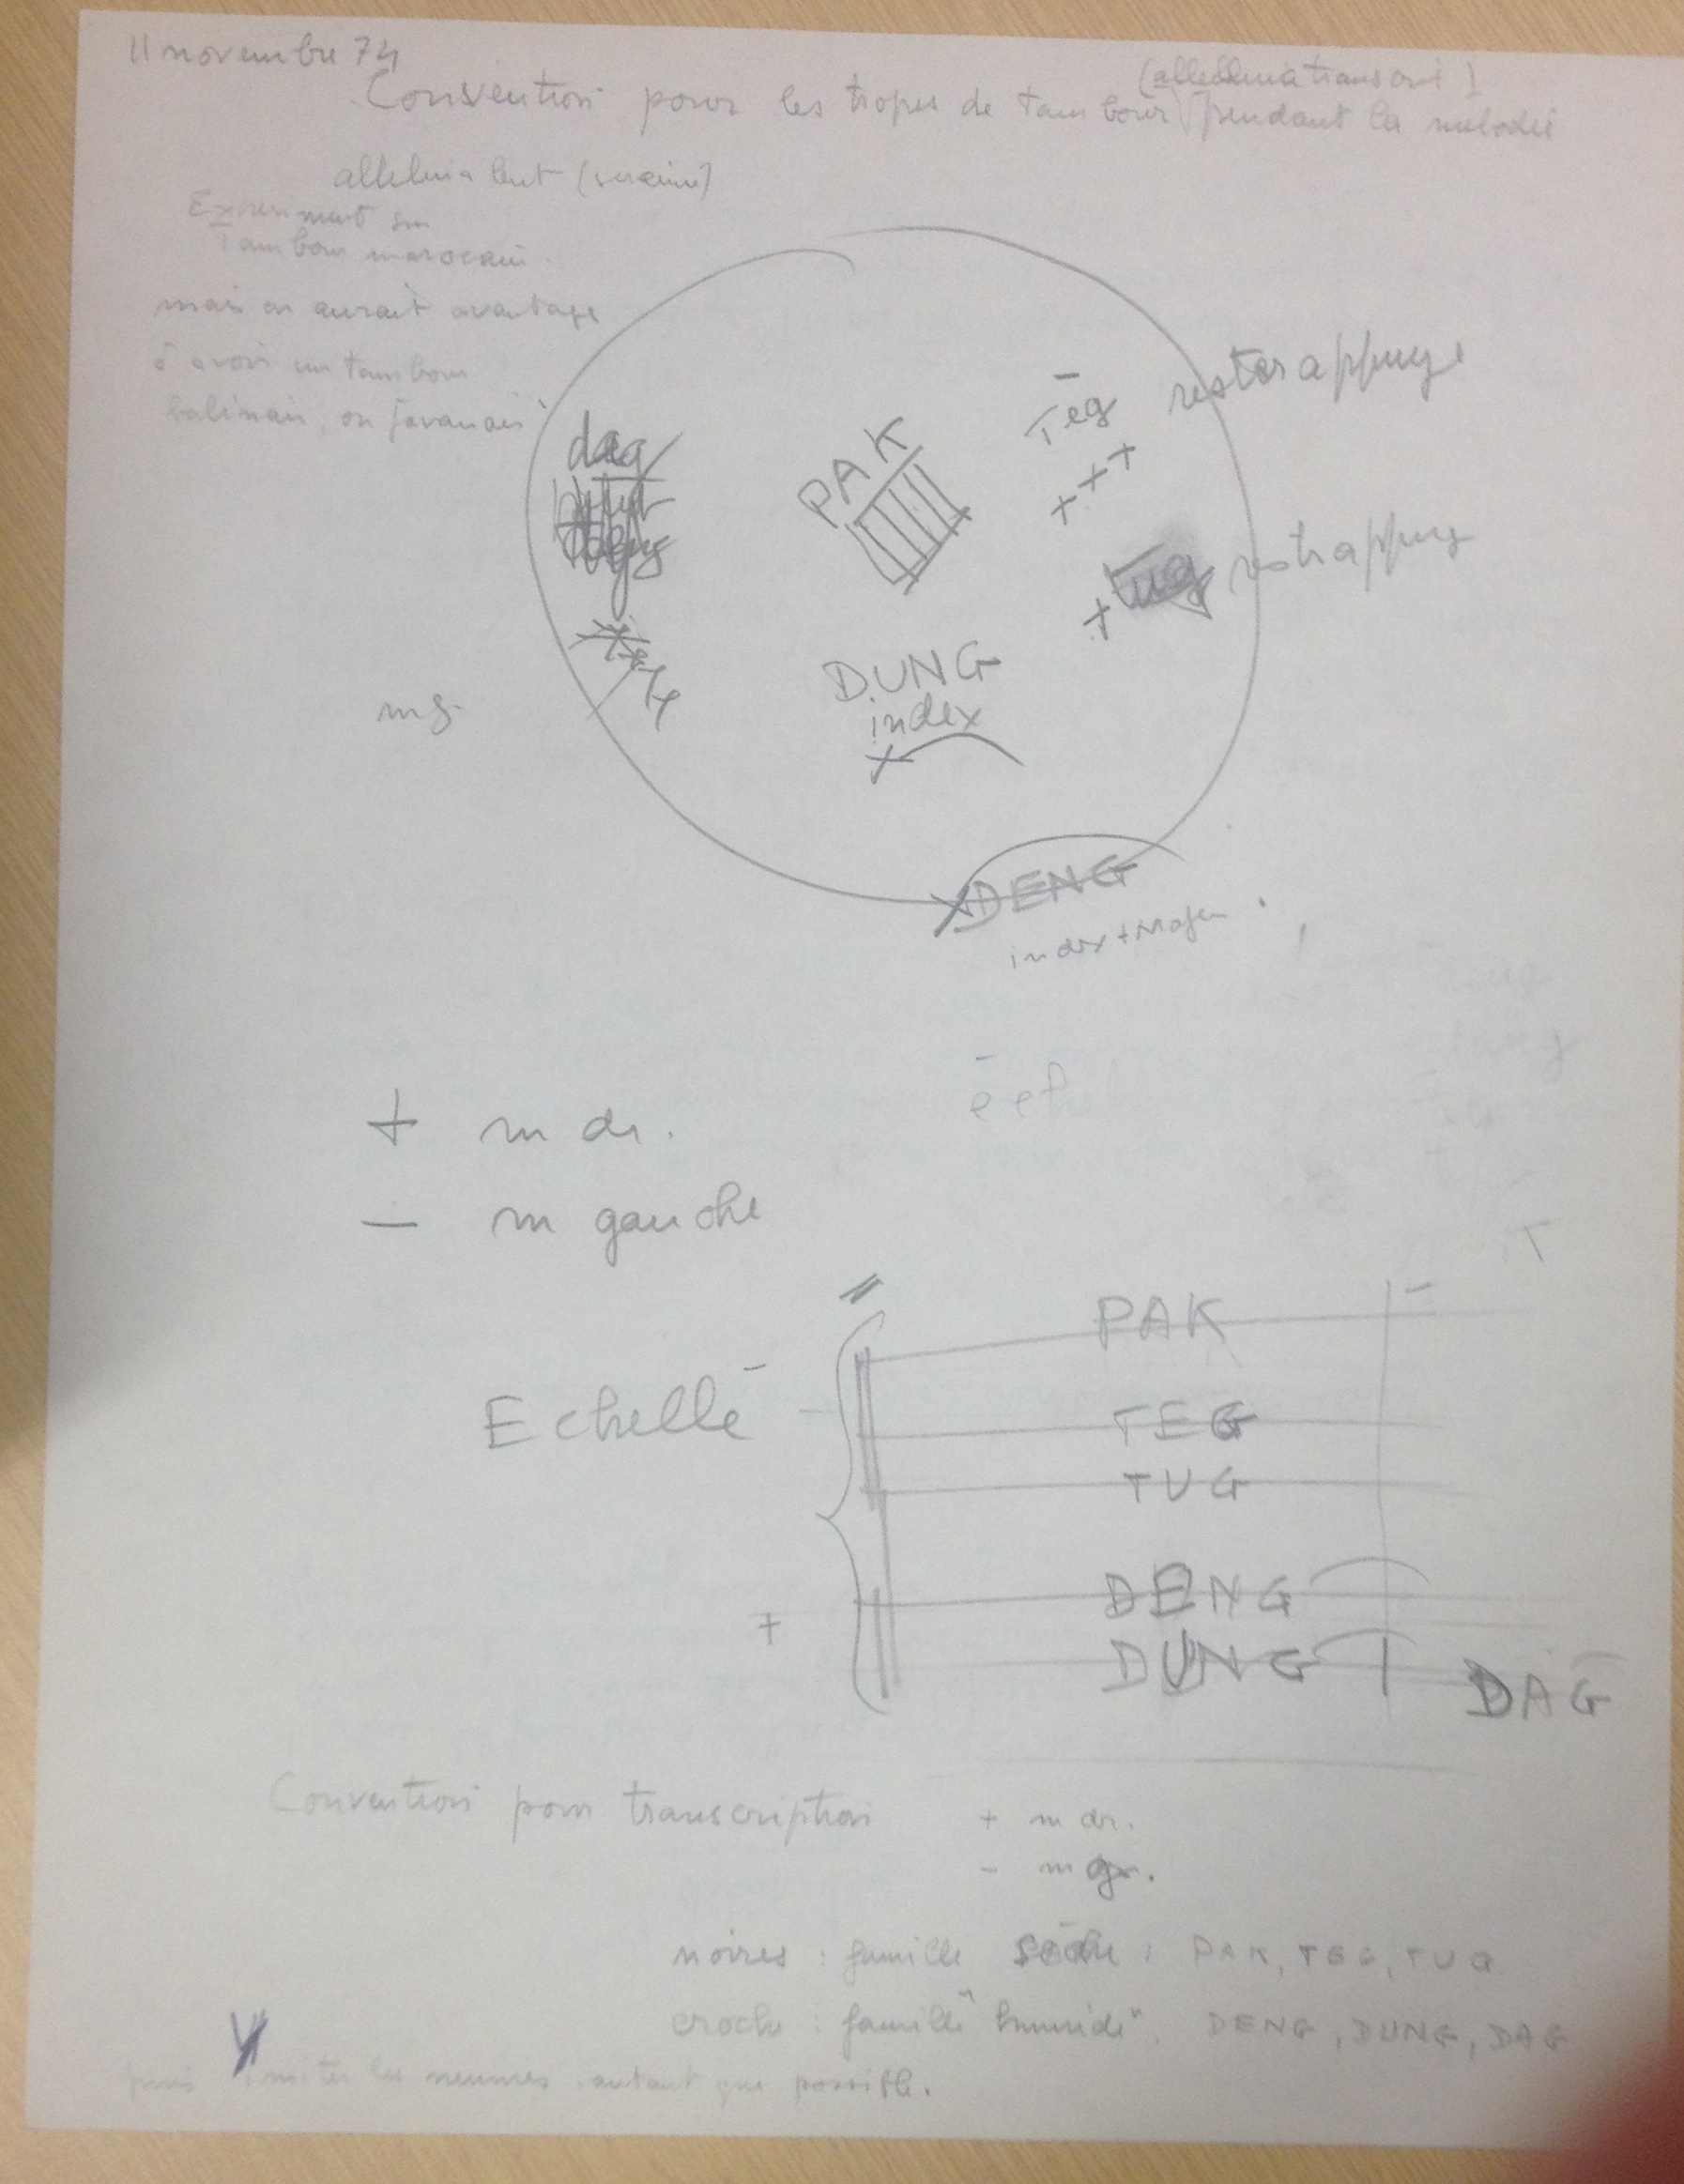 11 novembre 74
(alleluia transcrit)
Convention pour les tropes de tambour pendant la melodie
alleluia lent (serein)
Experiment sur
Tambour marocain
mais on aurait avantage
à avoir un tambour
balinais, ou javanais
dag
PAK
Teg rester appuyé
tug rest appuy
mg.
DUNG
index
DENG
index + majeur
+ m dr.
é et
— m gauche
T
PAK
Echelle
TEG
TUG
DENG
+
DUNG
DAG
Convention pour transcription + m dr.
- m g.
noires : famille sèche : PAK, TEG, TUG
croche : famille "humide". DENG, DUNG, DAG
puis imiter les neumes autant que possible.